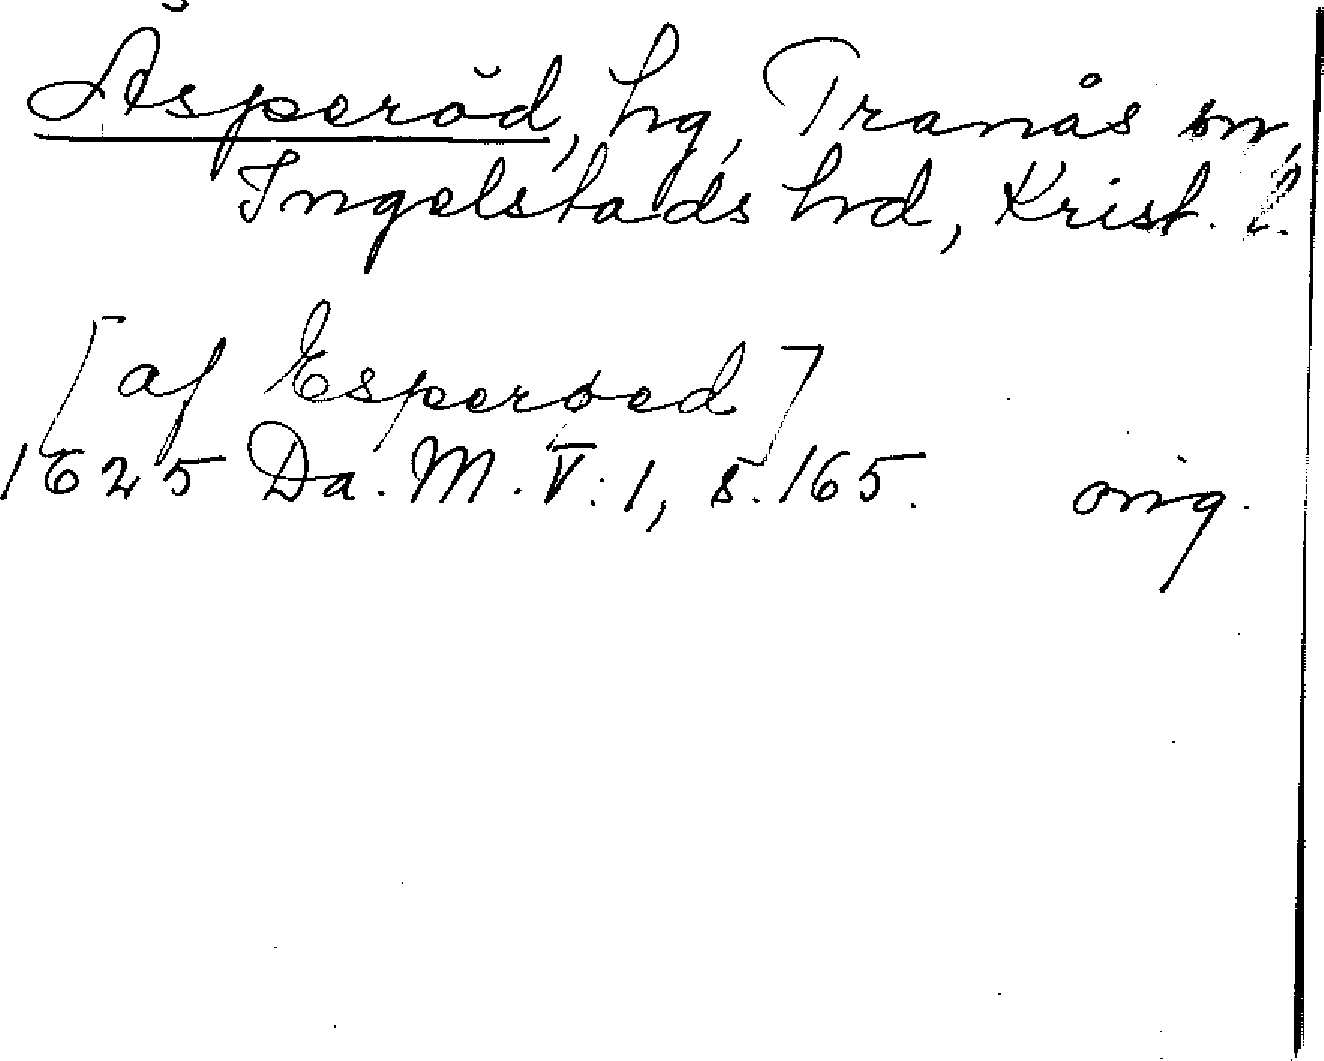 Äsperöd, hg, Tranås sn,
Ingelstads hrd, Krist. l.
[af Esperöed]
1625 Da. M. V: 1, s. 165. orig.